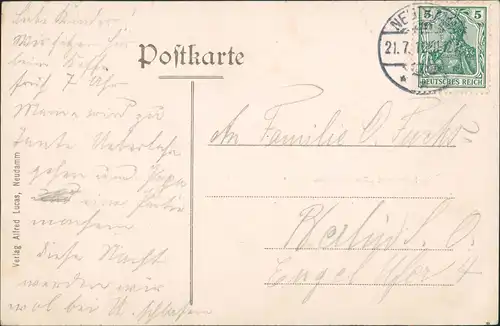 Liebe Kinder!
Wir sitzen hier
beim Kaffe
früh 7 Uhr
Mama wird zu
Tante
gehen und Papa
eine Partie
machen
diese Nacht
werden wir
wol bei schlafen
Postkarte
An Familie O. Fuchs
Berlin S. O.
Engel Ufer 4
Verlag Alfred Lucas, Neudamm
5 5
DEUTSCHES REICH
21.7.